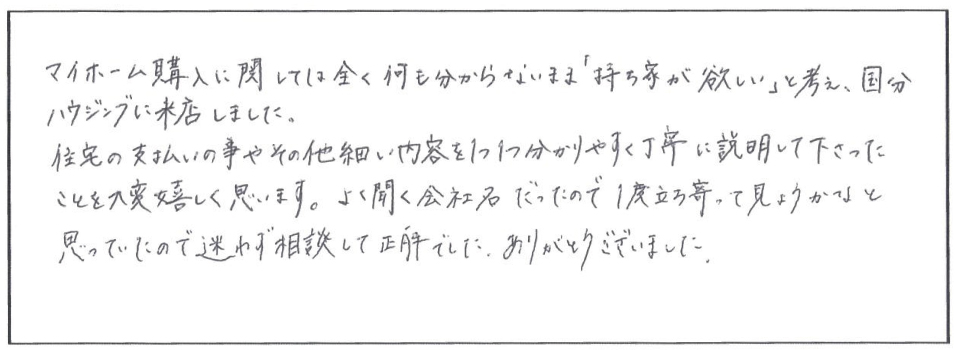 マイホーム購入に関しては全く何も分からないまま「持ち家が欲しい」と考え、国分
ハウジングに来店しました。
住宅の支払いの事やその他細い内容を1つ1つ分かりやすく丁寧に説明して下さった
ことを大変嬉しく思います。よく聞く会社名だったので1度立ち寄って見ようかなと
思っていたので迷わず相談して正解でした。ありがとうございました。